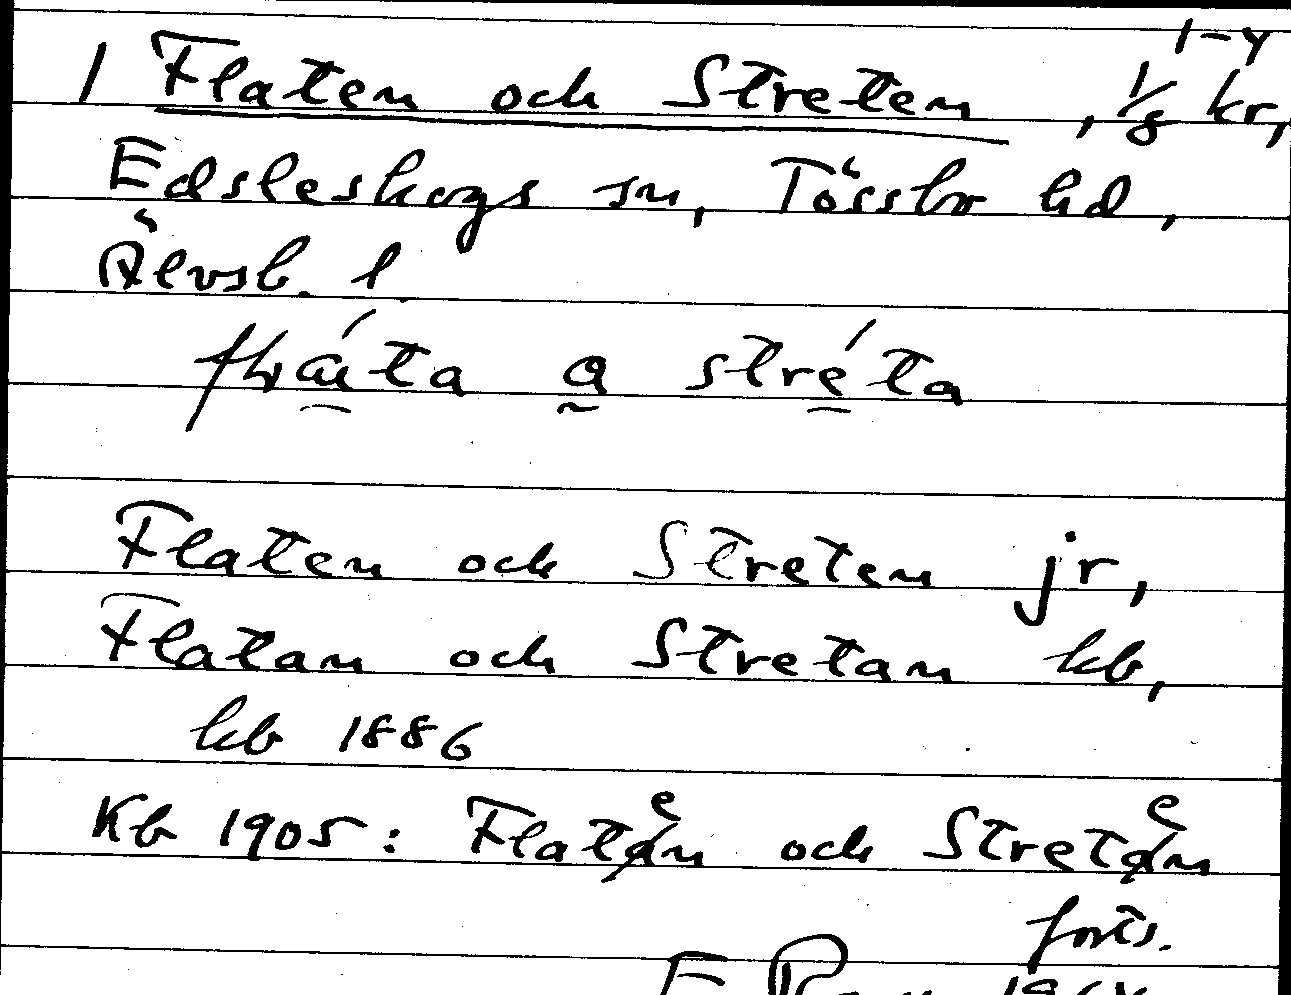 1-4
1 Flaten och Streten, 1/8 kr,
Edsleskogs sn, Tössbo hd,
Älvsb. l
a streta
Flaten och Streten jr,
Flatan och Stretan kb,
hb 1886
Kb 1905: Flaten och Streten
forts.